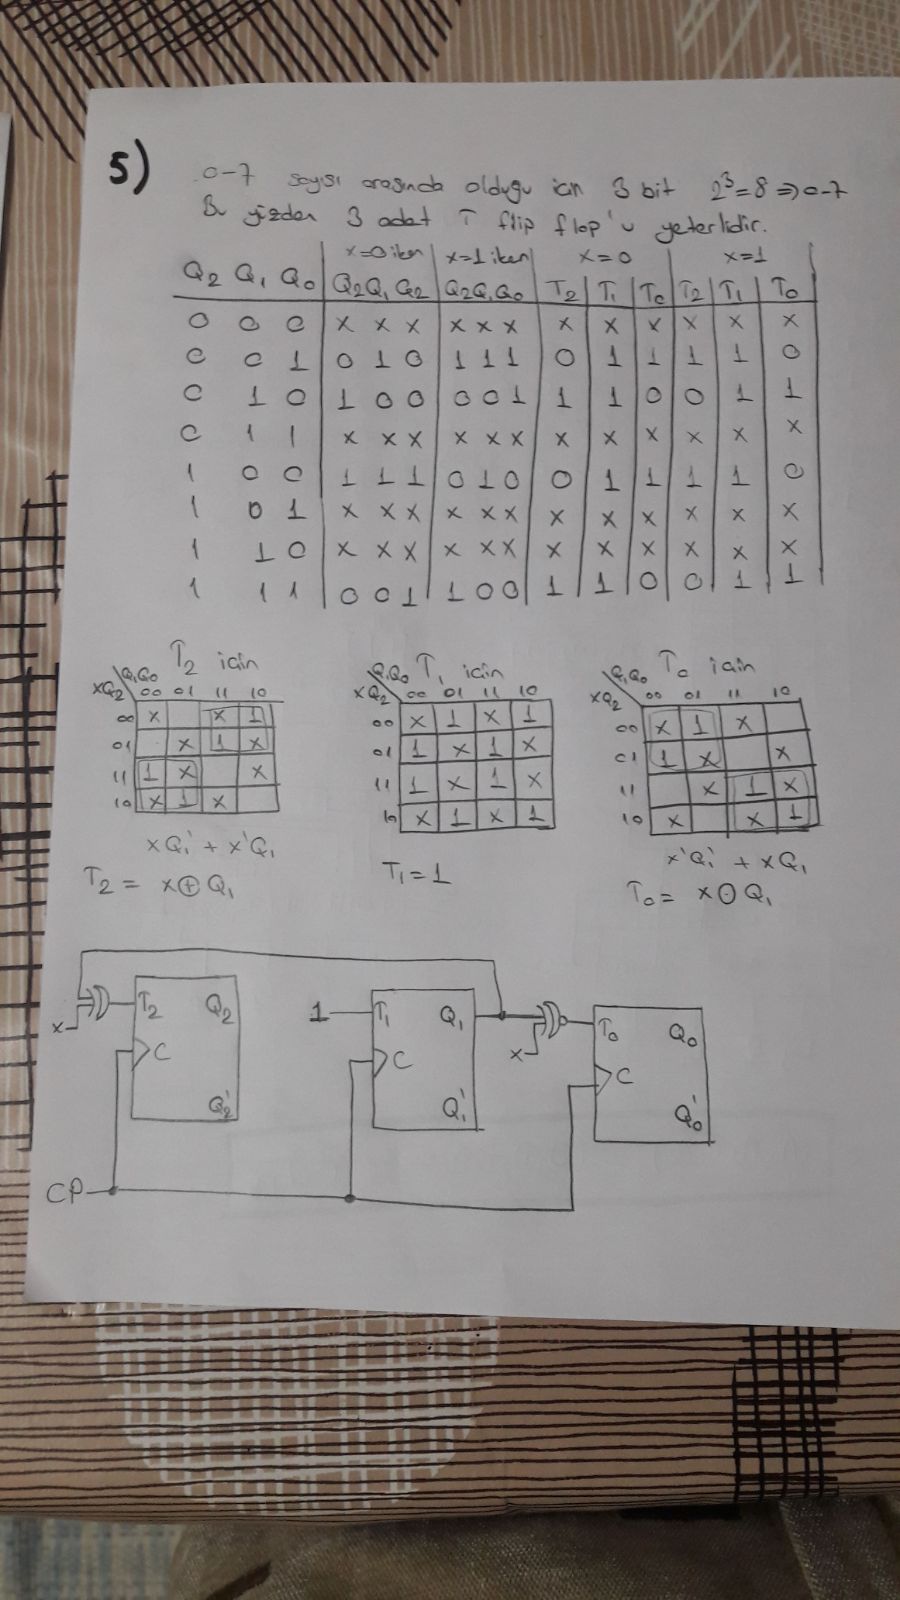 5)
0-7 sayısı arasında olduğu icin 3 bit 2³=8 => 0-7
Bu yüzden 3 adet T flip flop'u yeterlidir.
x=0 iken x=1 iken x=0 x=1
Q2 Q1 Q0 Q2 Q1 Q2 Q2 Q1 Q0 T2 T1 T0 T2 T1 T0
0 0 0 x x x x x x x x x x x x
0 0 1 0 1 0 1 1 1 0 1 1 1 1 0
0 1 0 1 0 0 0 0 1 1 1 0 0 1 1
0 1 1 x x x x x x x x x x x x
1 0 0 1 1 1 0 1 0 0 1 1 1 1 0
1 0 1 x x x x x x x x x x x x
1 1 0 x x x x x x x x x x x x
1 1 1 0 0 1 1 0 0 1 1 0 0 1 1
T2 icin
Q1Q0
xQ2 00 01 11 10
00 x x 1
01 x 1 x
11 1 x x
10 x 1 x
xQ1' + x'Q1
T2 = x⊕Q1
T1 icin
Q1Q0
xQ2 00 01 11 10
00 x 1 x 1
01 1 x 1 x
11 1 x 1 x
10 x 1 x 1
T1 = 1
T0 icin
Q1Q0
xQ2 00 01 11 10
00 x 1 x
01 1 x x
11 x 1 x
10 x x 1
x'Q1' + xQ1
T0 = x⊙Q1
x T2 Q2 C Q2'
1 T1 Q1 C Q1'
x T0 Q0 C Q0'
CP